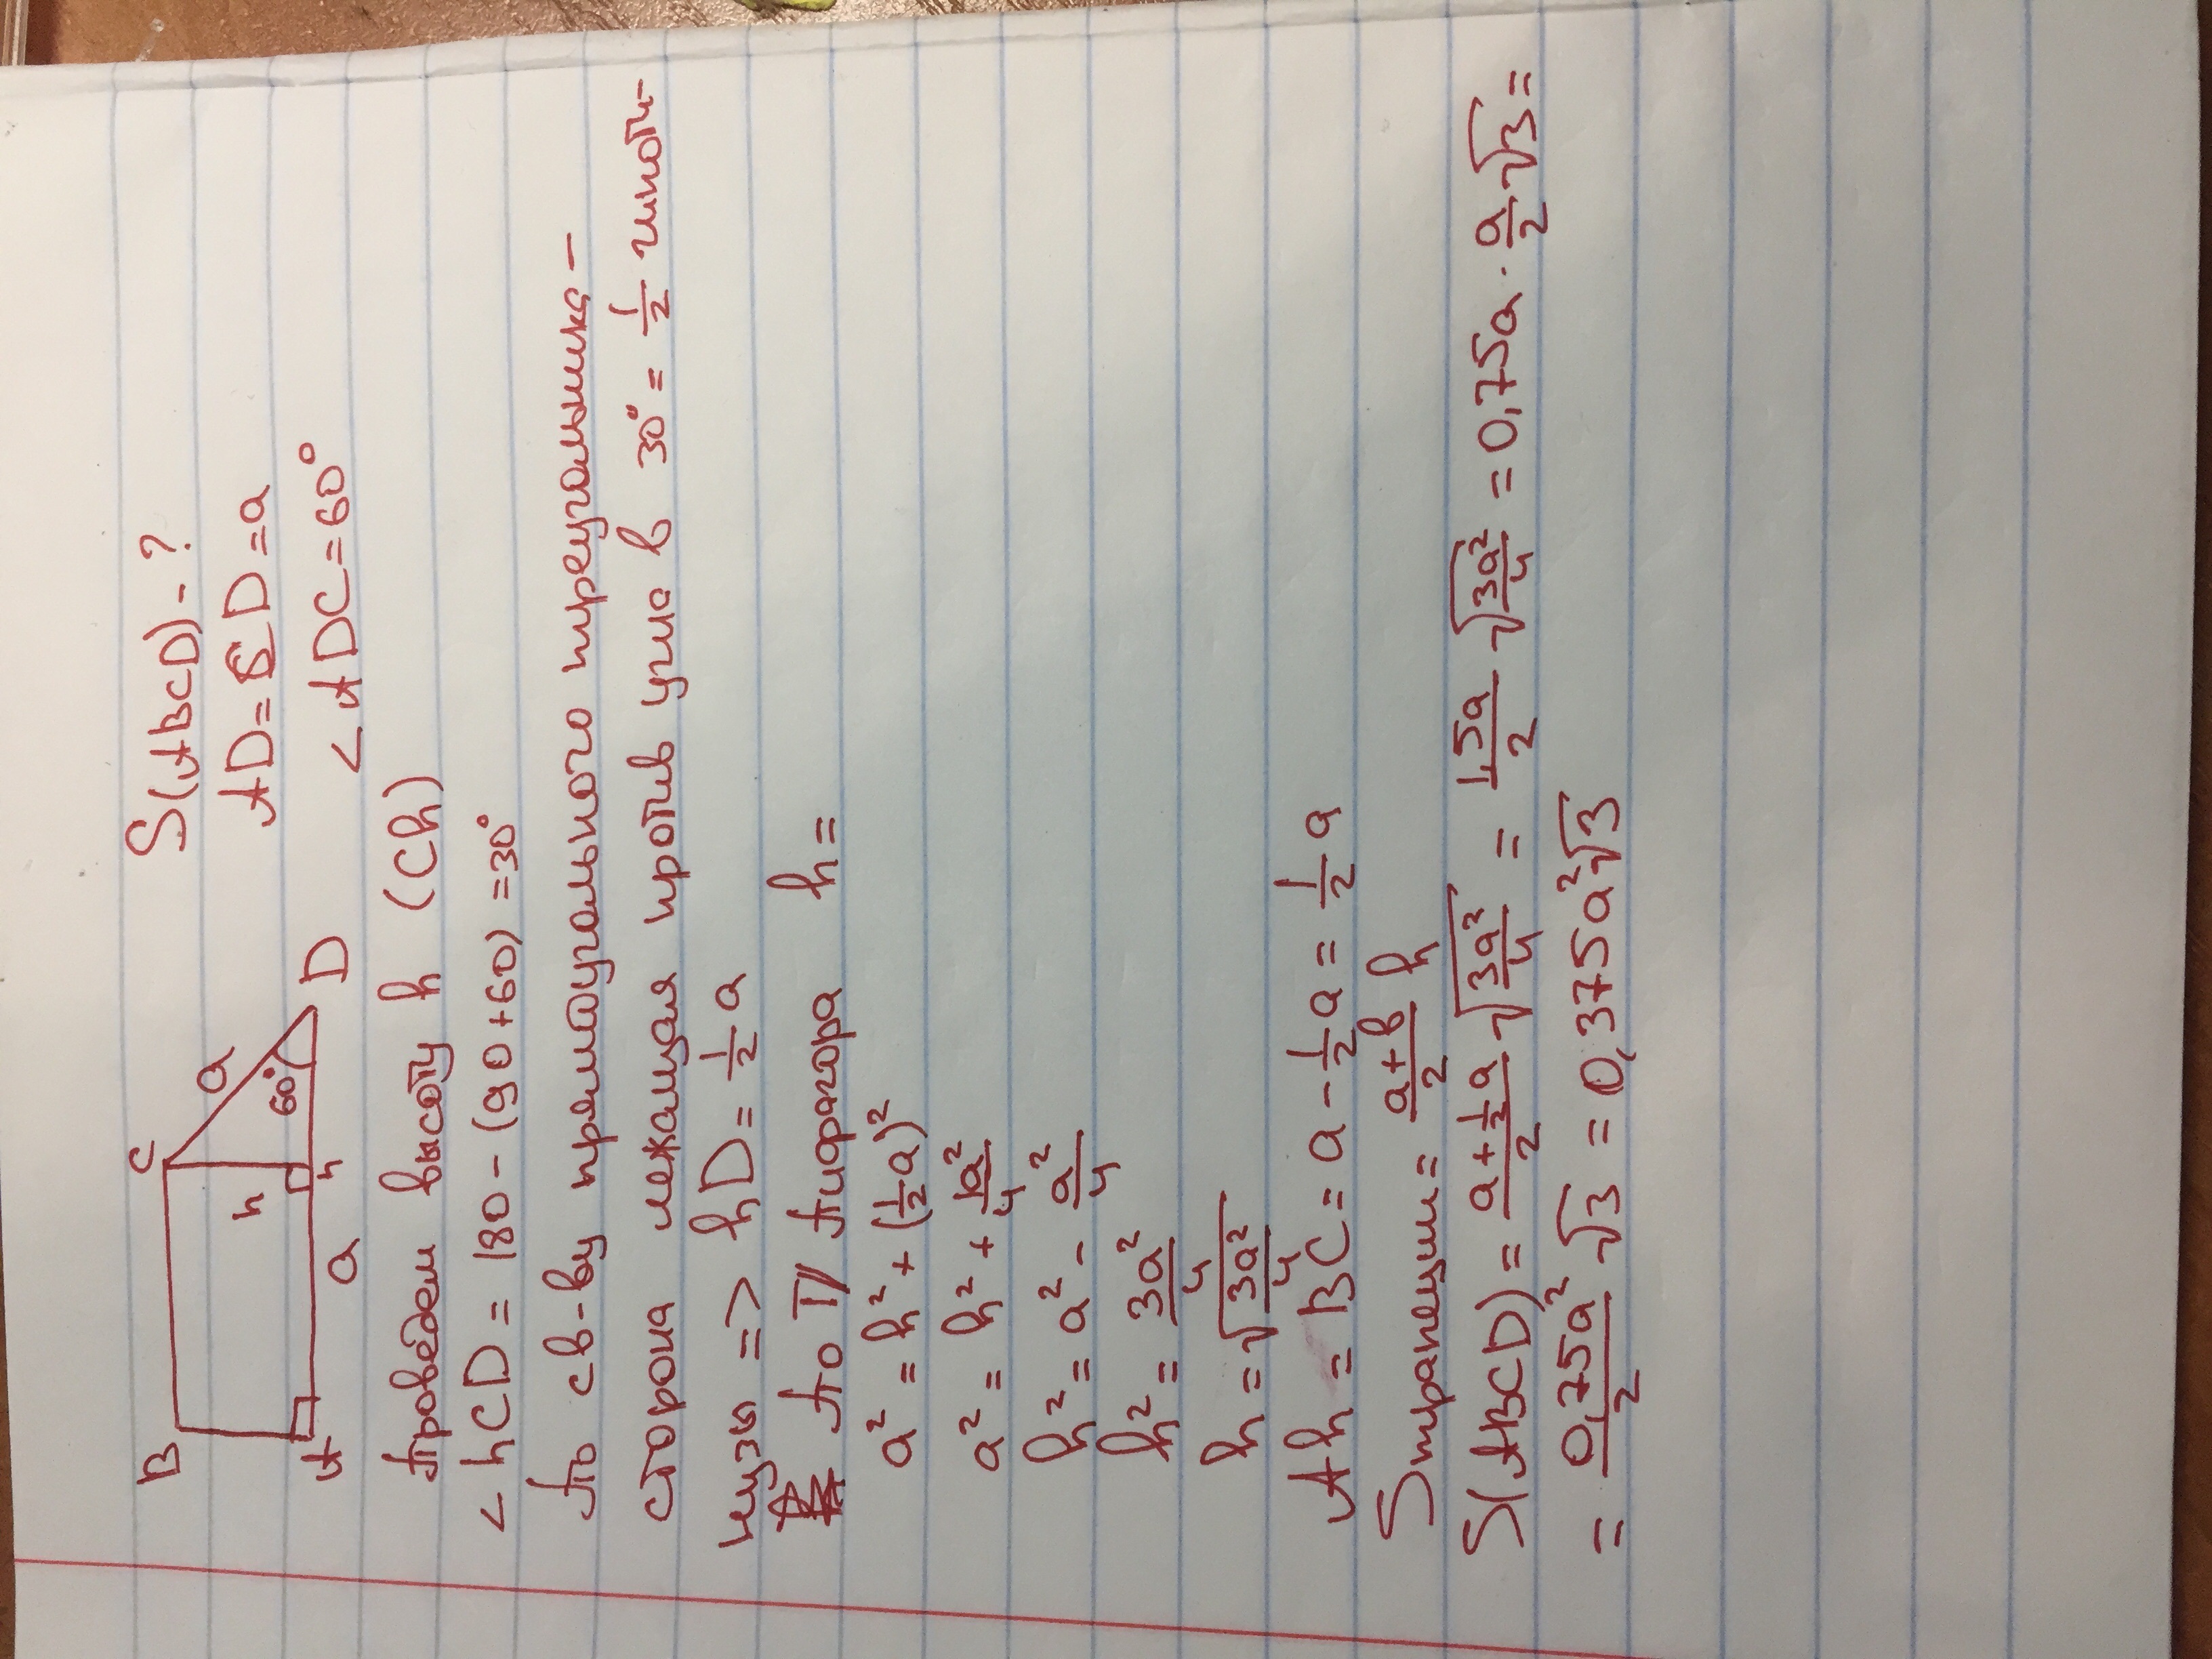 B C a 60° D A a h h
S(ABCD) - ?
AD = CD = a
∠ADC = 60°
Проведем высоту h (Ch)
∠hCD = 180 - (90 + 60) = 30°
По св-ву прямоугольного треугольника -
сторона лежащая против угла в 30° = 1/2 гипоте-
нузы => hD = 1/2 a
По П/ Пифагора h =
a² = h² + (1/2 a)²
a² = h² + 1a²/4
h² = a² - a²/4
h² = 3a²/4
h = √(3a²/4)
Ah = BC = a - 1/2 a = 1/2 a
Sтрапеции = (a + b)/2 h
S(ABCD) = (a + 1/2 a)/2 √(3a²/4) = 1,5a/2 √(3a²/4) = 0,75a · a/2 √3 =
= 0,75a²/2 √3 = 0,375a²√3